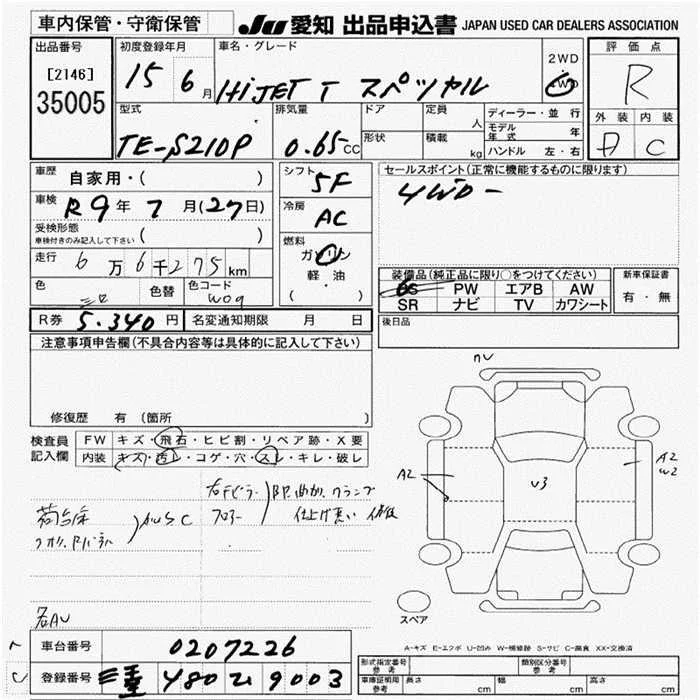 車内保管・守衛保管
JU 愛知 出品申込書 JAPAN USED CAR DEALERS ASSOCIATION
出品番号
[2146]
35005
初度登録年月
15 6月
車名・グレード
HiJET T スペツャル
2WD
4WD
評価点
R
外装 内装
A C
型式
TE-S210P
排気量
0.65cc
ドア
形状
定員 人
積載 kg
ディーラー・並行
モデル年式 年
ハンドル 左・右
車歴 自家用・( )
車検 R9年7月(27日)
受検形態
車検付きのみ記入して下さい ( )
走行 6万6千275km
色
色替
色コード
W09
シフト 5F
冷房 AC
燃料
ガソリン
軽・油
( )
セールスポイント(正常に機能するものに限ります)
4WD-
装備品(純正品に限り○をつけてください)
PS PW エアB AW
SR ナビ TV カワシート
新車保証書
有・無
R券 5.340円
名変通知期限 月 日
後日品
注意事項申告欄(不具合内容等は具体的に記入して下さい)
修復歴 有(箇所 )
検査員記入欄
FW キズ・飛石・ヒビ割・リペア跡・X要
内装 キズ・汚レ・コゲ・穴・スレ・キレ・破レ
荷台床
AWSC
フロアー
各AU
nv
A2
U3
A2
W2
スペア
A-キズ E-エクボ U-凹み W-補修跡 S-サビ C-腐食 XX-交換済
車台番号 0207226
登録番号 三重 480 い 9003
形式指定番号 参考
類別区分番号 参考
車庫証明用 参考
長さ cm 幅 cm 高さ cm